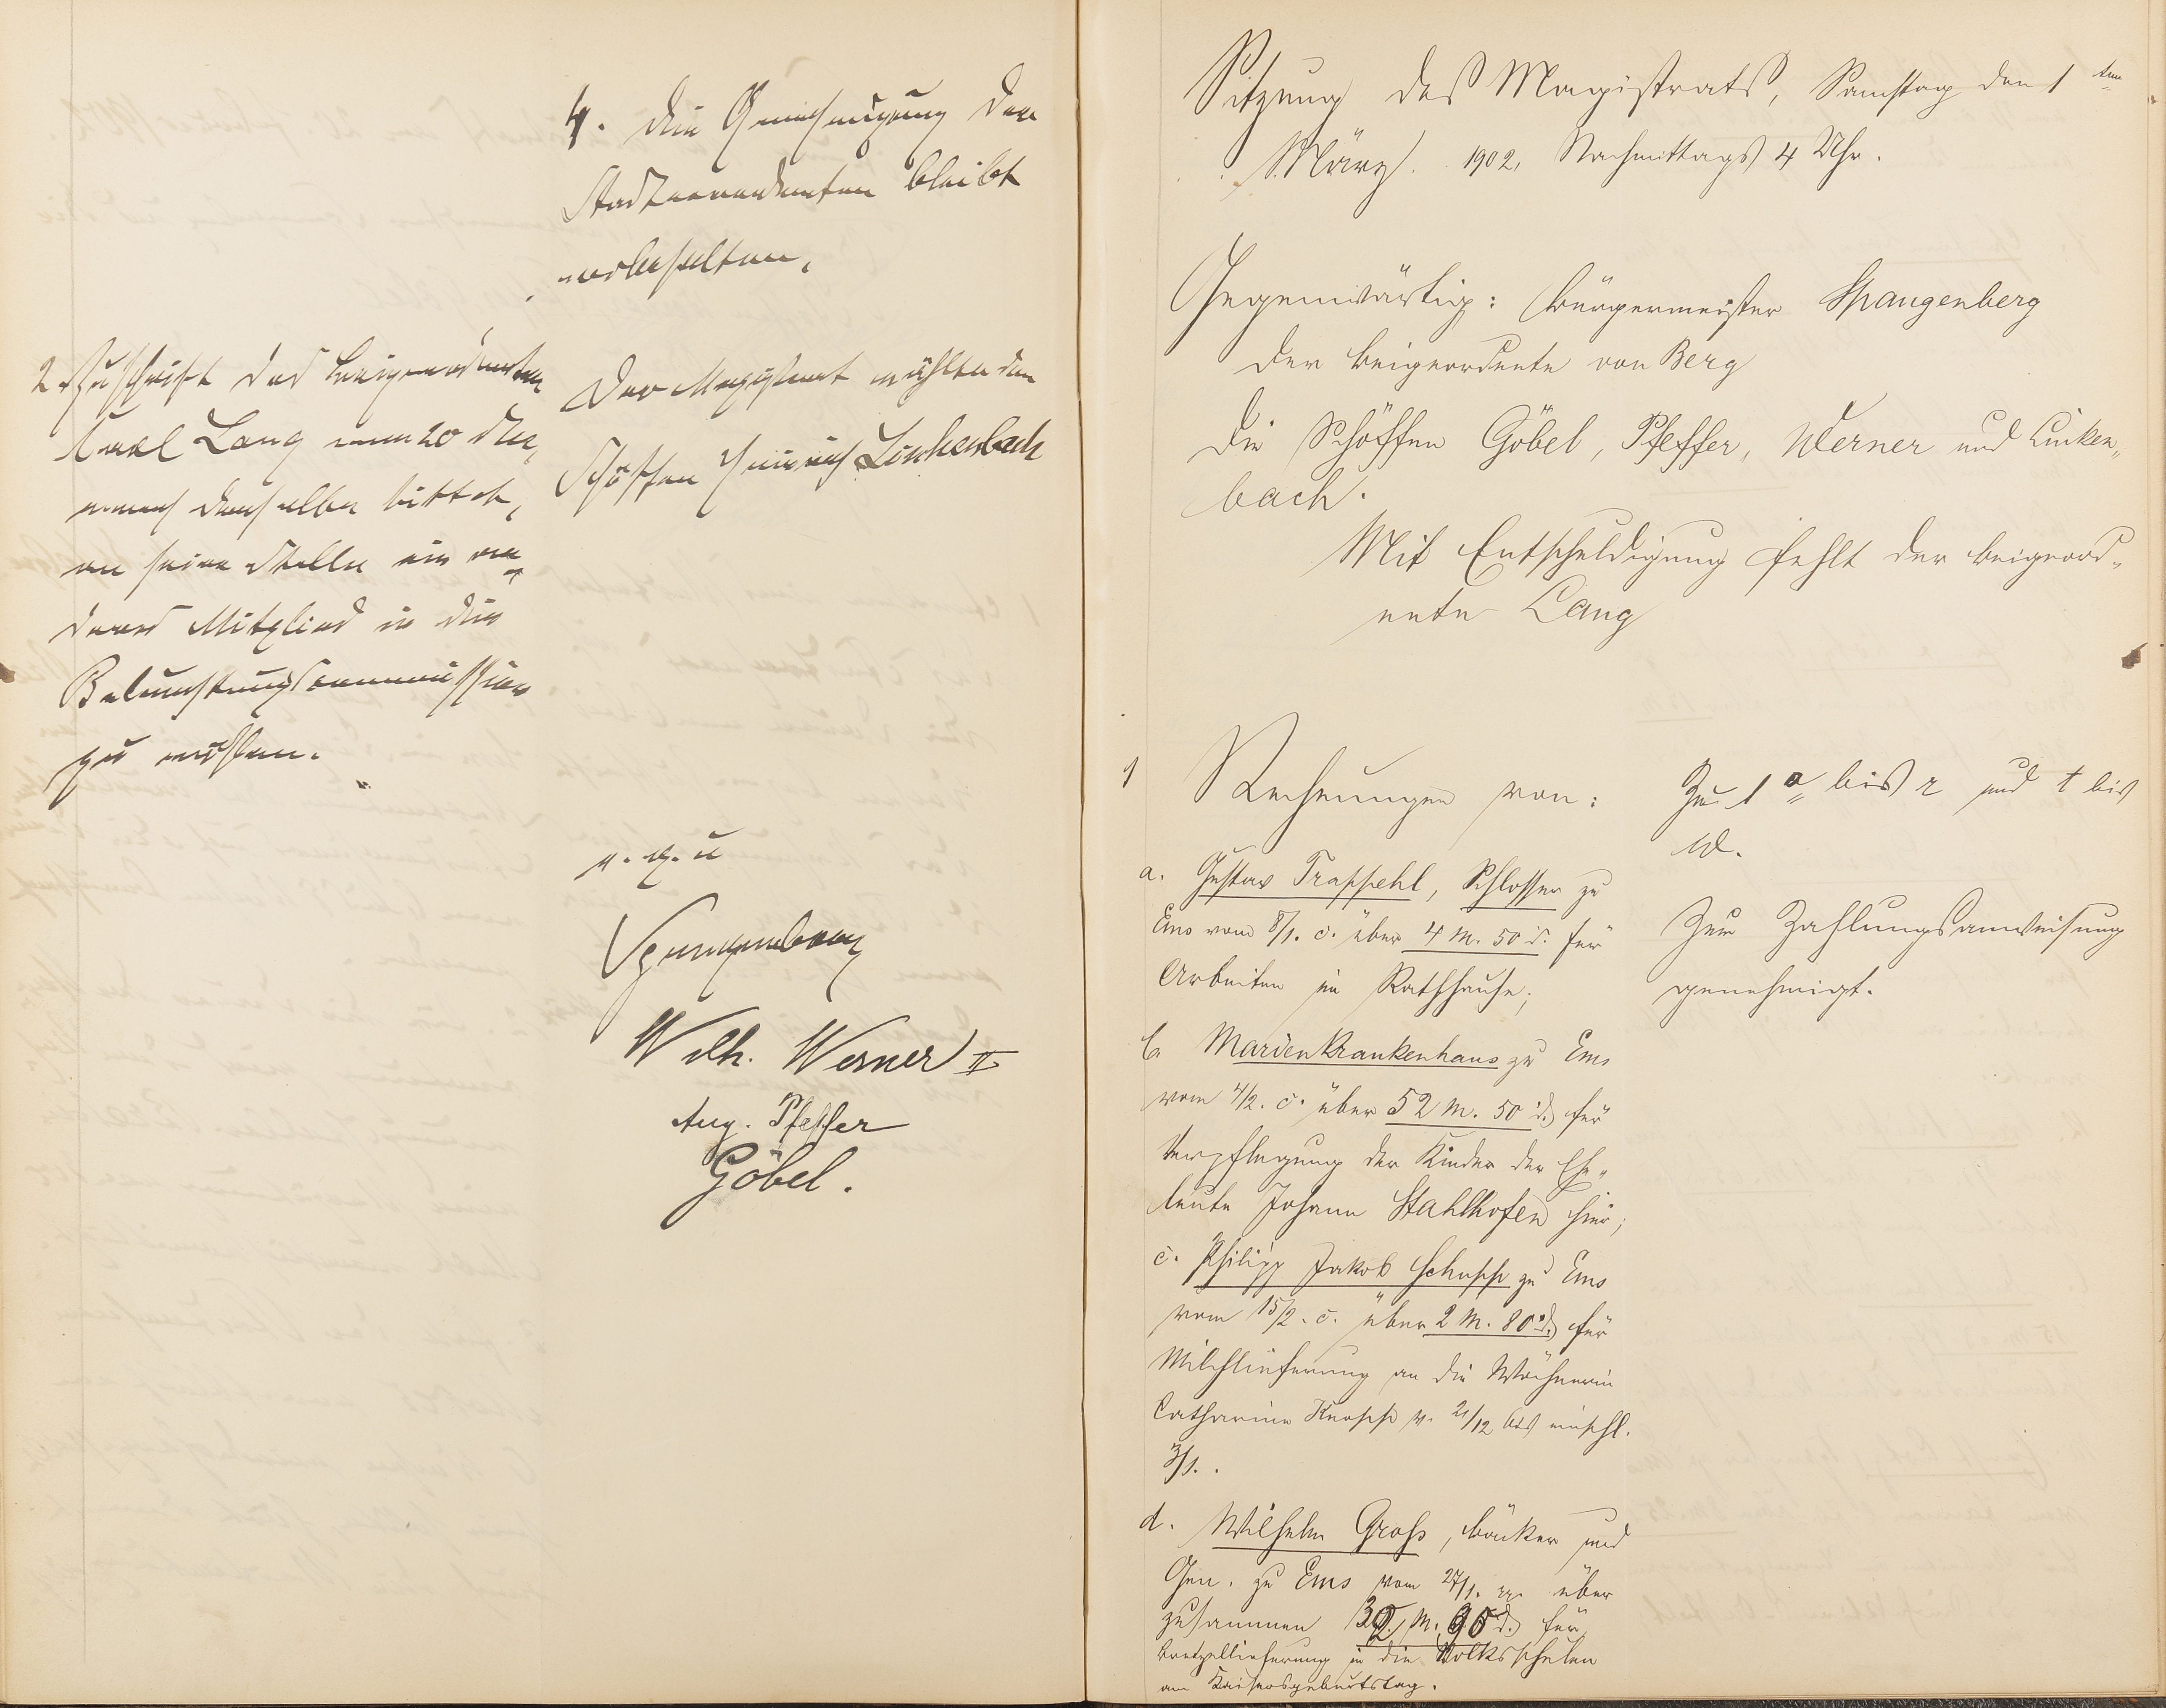 4. Die Genehmigung der
Stadtverordneten bleibt
vorbehalten.
2. Zuschrift des Beigeordneten
Karl Lang vom 20 dM.,
wonach derselbe bittet,
an seine Stelle ein an-
deres Mitglied in die
Beleuchtungscommission
zu wählen.
Der Magistrat wählte den
Schöffen Heinrich Linkenbach
v. g. u
Spangenberg
Wilh. Werner II
Aug. Pfeffer
Göbel.
Sitzung des Magistrats, Samstag den 1ten
März 1902, Nachmittags 4 Uhr.
Gegenwärtig: Bürgermeister Spangenberg
Der Beigeordnete von Berg
Die Schöffen Göbel, Pfeffer, Werner und Linken„
bach.
Mit Entschuldigung fehlt der Beigeord„
nete Lang
1 Rechnungen von:
a. Gustav Trappehl, Schlosser zu
Ems vom 8/1. c. über 4 M. 50 d. für
Arbeiten im Rathhause;
b. Marienkrankenhaus zu Ems
vom 4/2. c. über 52 M. 50 d. für
Verpflegung der Kinder der Ehe„
leute Johann Stahlhofen hier;
c. Philipp Jakob Schupp zu Ems
vom 15/2. c. über 2 M. 80 d. für
Milchlieferung an die Wöchnerin
Catharina Knopp v. 21/12 bis einschl.
3/1..
d. Wilhelm Groß, Bäcker und
Gen. zu Ems vom 27/1. über
zusammen 32 M. 90 d. für
Bretzellieferung in die Volksschulen
am Kaisersgeburtstag.
Zu 1 a bis r und t bis
w.
Zur Zahlungsanweisung
genehmigt.